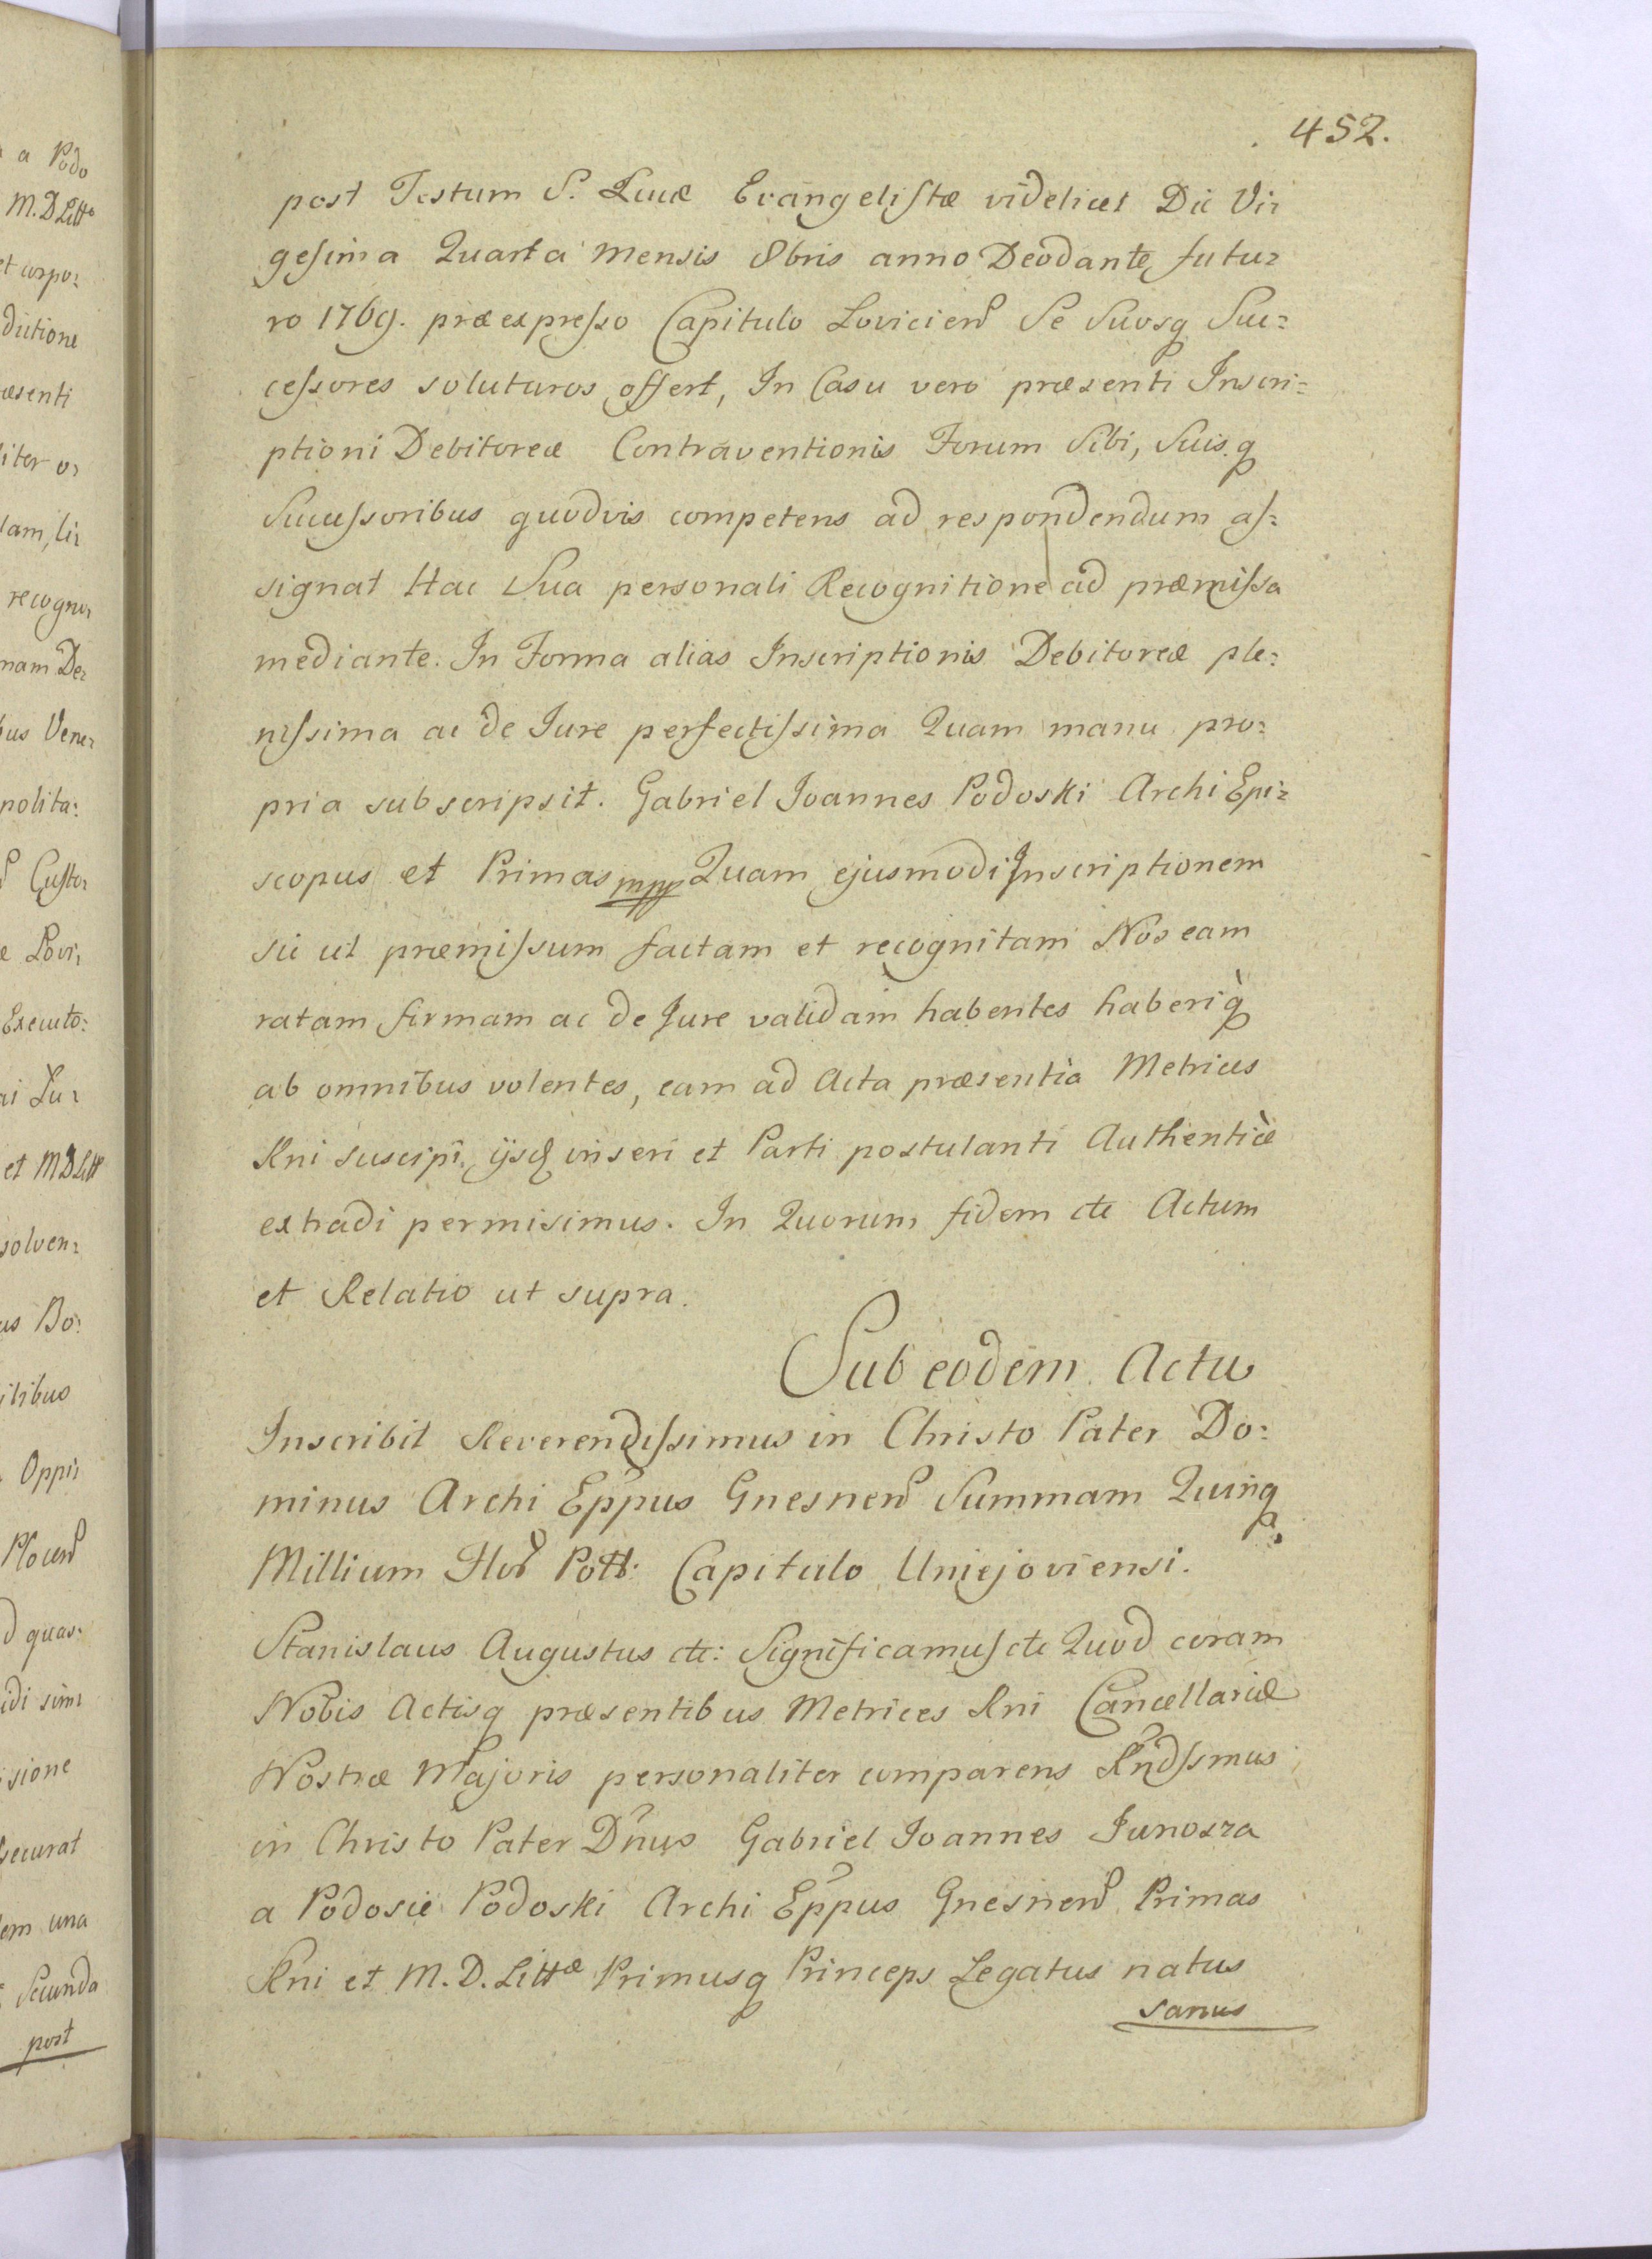 452.
post Festum S. Lucæ Evangeliſtæ videlicet Die Vi=
geſima Quarta Mensis 8bris anno Deodante futu=
ro 1769. præexpreſso Capitulo Lovicien̄ Se Suosq Suc=
ceſsores soluturos offert, In Casu vero præsenti Inscri=
ptioni Debitoreæ Contraventionis Forum Sibi, Suisq
Succeſsoribus quodvis competens ad respondendum aſ=
signat Hac Sua personali Recognitione ad præmiſsa
mediante. In Forma alias Inscriptionis Debitoreæ ple=
niſsima ac de Jure perfectiſsima Quam manu pro=
pria subscripsit. Gabriel Joannes Podoski Archi Epi=
scopus et Primas mpp Quam ejusmodi Inscriptionem
sic ut præmiſsum factam et recognitam Nos eam
ratam firmam ac de Jure validam habentes haberiq̀
ab omnibus volentes, eam ad Acta præsentia Metrices
Rni suscipi, ijsq inseri et Parti postulanti Authenticè
extradi permisimus. In Quorum fidem etc Actum
et Relatio ut supra.
Sub eodem Actu
Inscribit Reverendiſsimus in Christo Pater Do=
minus Archi Eppus Gnesnen̄ Summam Quinq
Millium Flor̄ Poll: Capitulo Uniejoviensi.
Stanislaus Augustus etc: Significamuſ etc Quod coram
Nobis Actisq præsentibus Metrices Rni Cancellariæ
Nostræ Majoris personaliter comparens Rndſsmus
in Christo Pater Dnus Gabriel Joannes Junosza
a Podosie Podoski Archi Eppus Gnesnen̄ Primas
Rni et M. D. Littæ Primusq Princeps Legatus natus
sanus